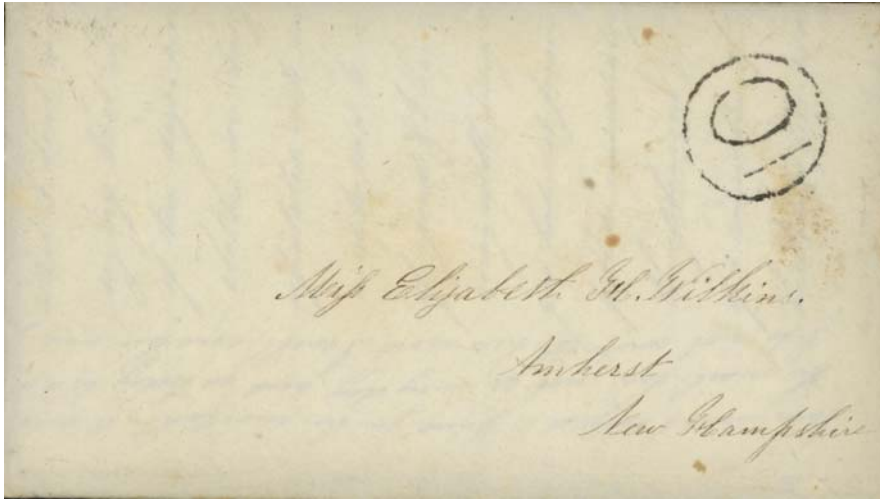 10
Miss Elizabeth H. Wilkins.
Amherst
New Hampshire